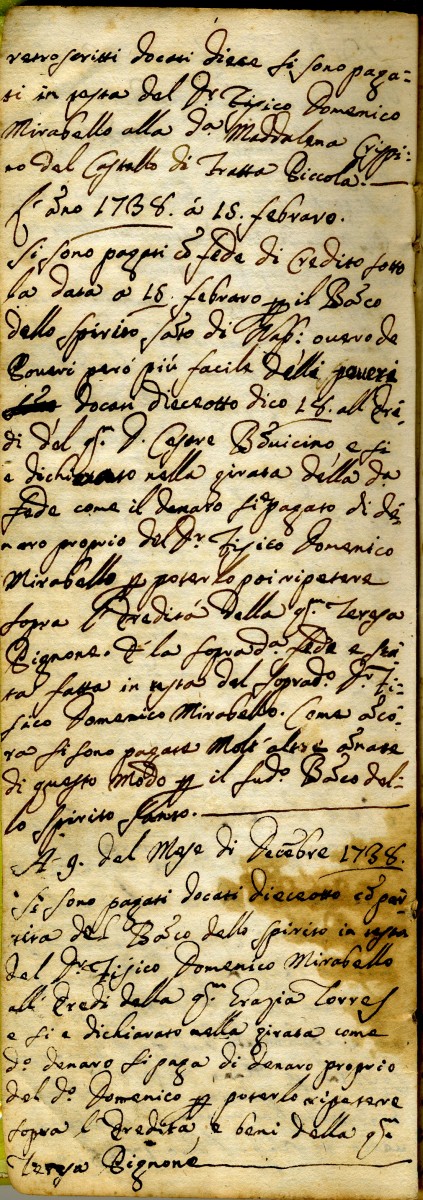 retroscritti docati diece si sono paga-
ti in testa del Dr Fisico Domenico
Mirabello alla da Maddalena Crispi-
no del Castello di Fratta Piccola.
anno 1738. á 15. febraro.
Si sono pagati cō fede di Credito sotto
la data á 15. febraro p il Bāco
dello Spirito Sāto di Nap: overo de
Poveri però più facile delli poveri
docati dieceotto dico 18. all'Ere-
di del qm D. Cesare e si
e dichiarato nella girata della da
fede come il denaro si è pagato di de-
naro proprio del Dr Fisico Domenico
Mirabello p poterlo poi ripetere
sopra l'Eredità della qm Teresa
Pignone. E la soprada fede e sta-
ta fatta in testa del soprado Dr Fi-
sico Domenico Mirabello. Come āco-
ra si sono pagate Molt'altre ānate
di questo Modo p il sudo Bāco del-
lo Spirito Santo.
A 9. del Mese di Decēbre 1738.
Si sono pagati docati dieceotto cō par-
tita del Bāco dello Spirito in testa
del Dr Fisico Domenico Mirabello
all'Eredi della qm Grazia Torres
e si e dichiarato nella girata come
do denaro si paga di denaro proprio
del do Domenico p poterlo ripetere
sopra l'Eredità, e beni della qm
Teresa Pignone